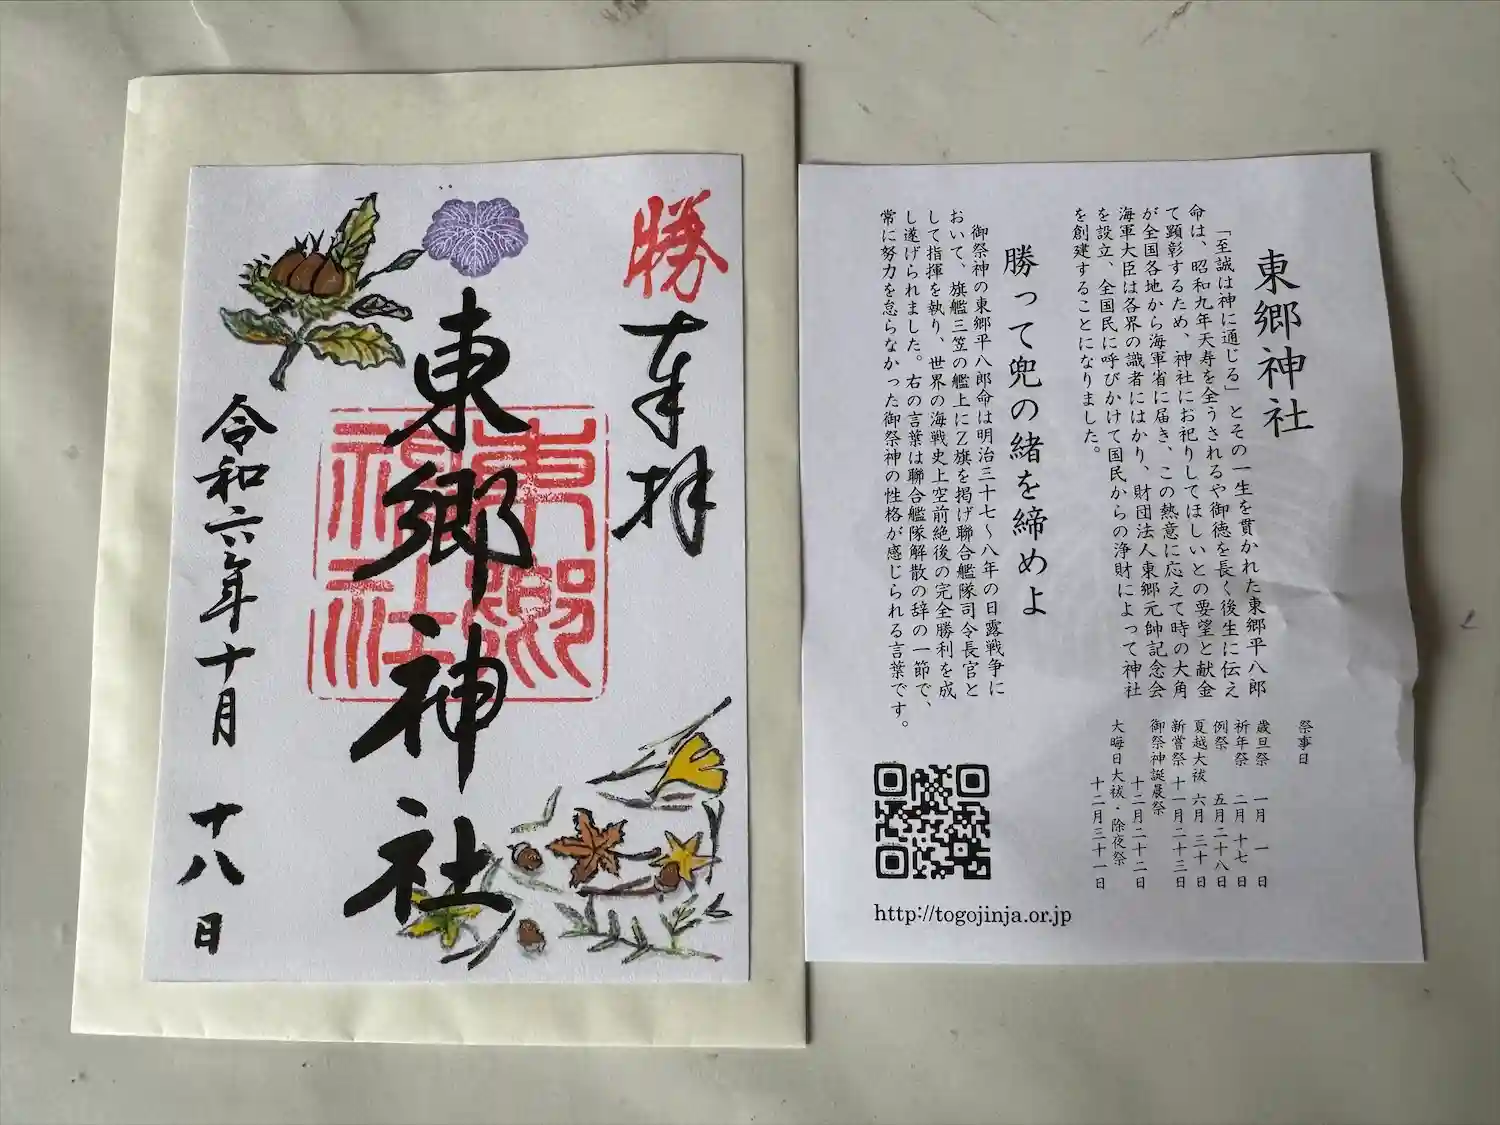 勝
奉拝
東郷神社
東郷神社
令和六年十月 十八日
東郷神社
「至誠は神に通じる」とその一生を貫かれた東郷平八郎
命は、昭和九年天寿を全うされるや御徳を長く後生に伝え
て顕彰するため、神社にお祀りしてほしいとの要望と献金
が全国各地から海軍省に届き、この熱意に応えて時の大角
海軍大臣は各界の識者にはかり、財団法人東郷元帥記念会
を設立、全国民に呼びかけて国民からの浄財によって神社
を創建することになりました。
勝って兜の緒を締めよ
御祭神の東郷平八郎命は明治三十七～八年の日露戦争に
おいて、旗艦三笠の艦上にZ旗を掲げ聯合艦隊司令長官と
して指揮を執り、世界の海戦史上空前絶後の完全勝利を成
し遂げられました。右の言葉は聯合艦隊解散の辞の一節で、
常に努力を怠らなかった御祭神の性格が感じられる言葉です。
祭事日
歳旦祭 一月 一日
祈年祭 二月 十七日
例祭 五月二十八日
夏越大祓 六月 三十日
新嘗祭 十一月二十三日
御祭神誕晨祭 十二月二十二日
大晦日大祓・除夜祭
十二月三十一日
http://togojinja.or.jp